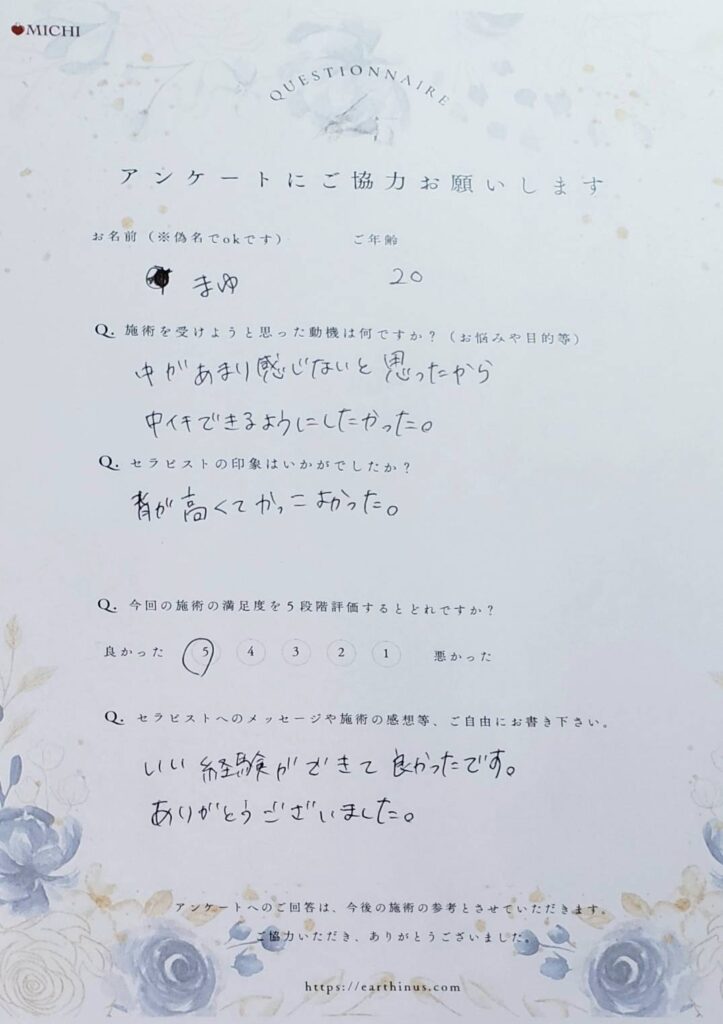 MICHI
QUESTIONNAIRE
アンケートにご協力お願いします
お名前（※偽名でokです） ご年齢
まゆ 20
Q. 施術を受けようと思った動機は何ですか？（お悩みや目的等）
中があまり感じないと思ったから
中イキできるようにしたかった。
Q. セラピストの印象はいかがでしたか？
背が高くてかっこよかった。
Q. 今回の施術の満足度を5段階評価するとどれですか？
良かった 5 4 3 2 1 悪かった
Q. セラピストへのメッセージや施術の感想等、ご自由にお書き下さい。
いい経験ができて良かったです。
ありがとうございました。
アンケートへのご回答は、今後の施術の参考とさせていただきます。
ご協力いただき、ありがとうございました。
https://earthinus.com